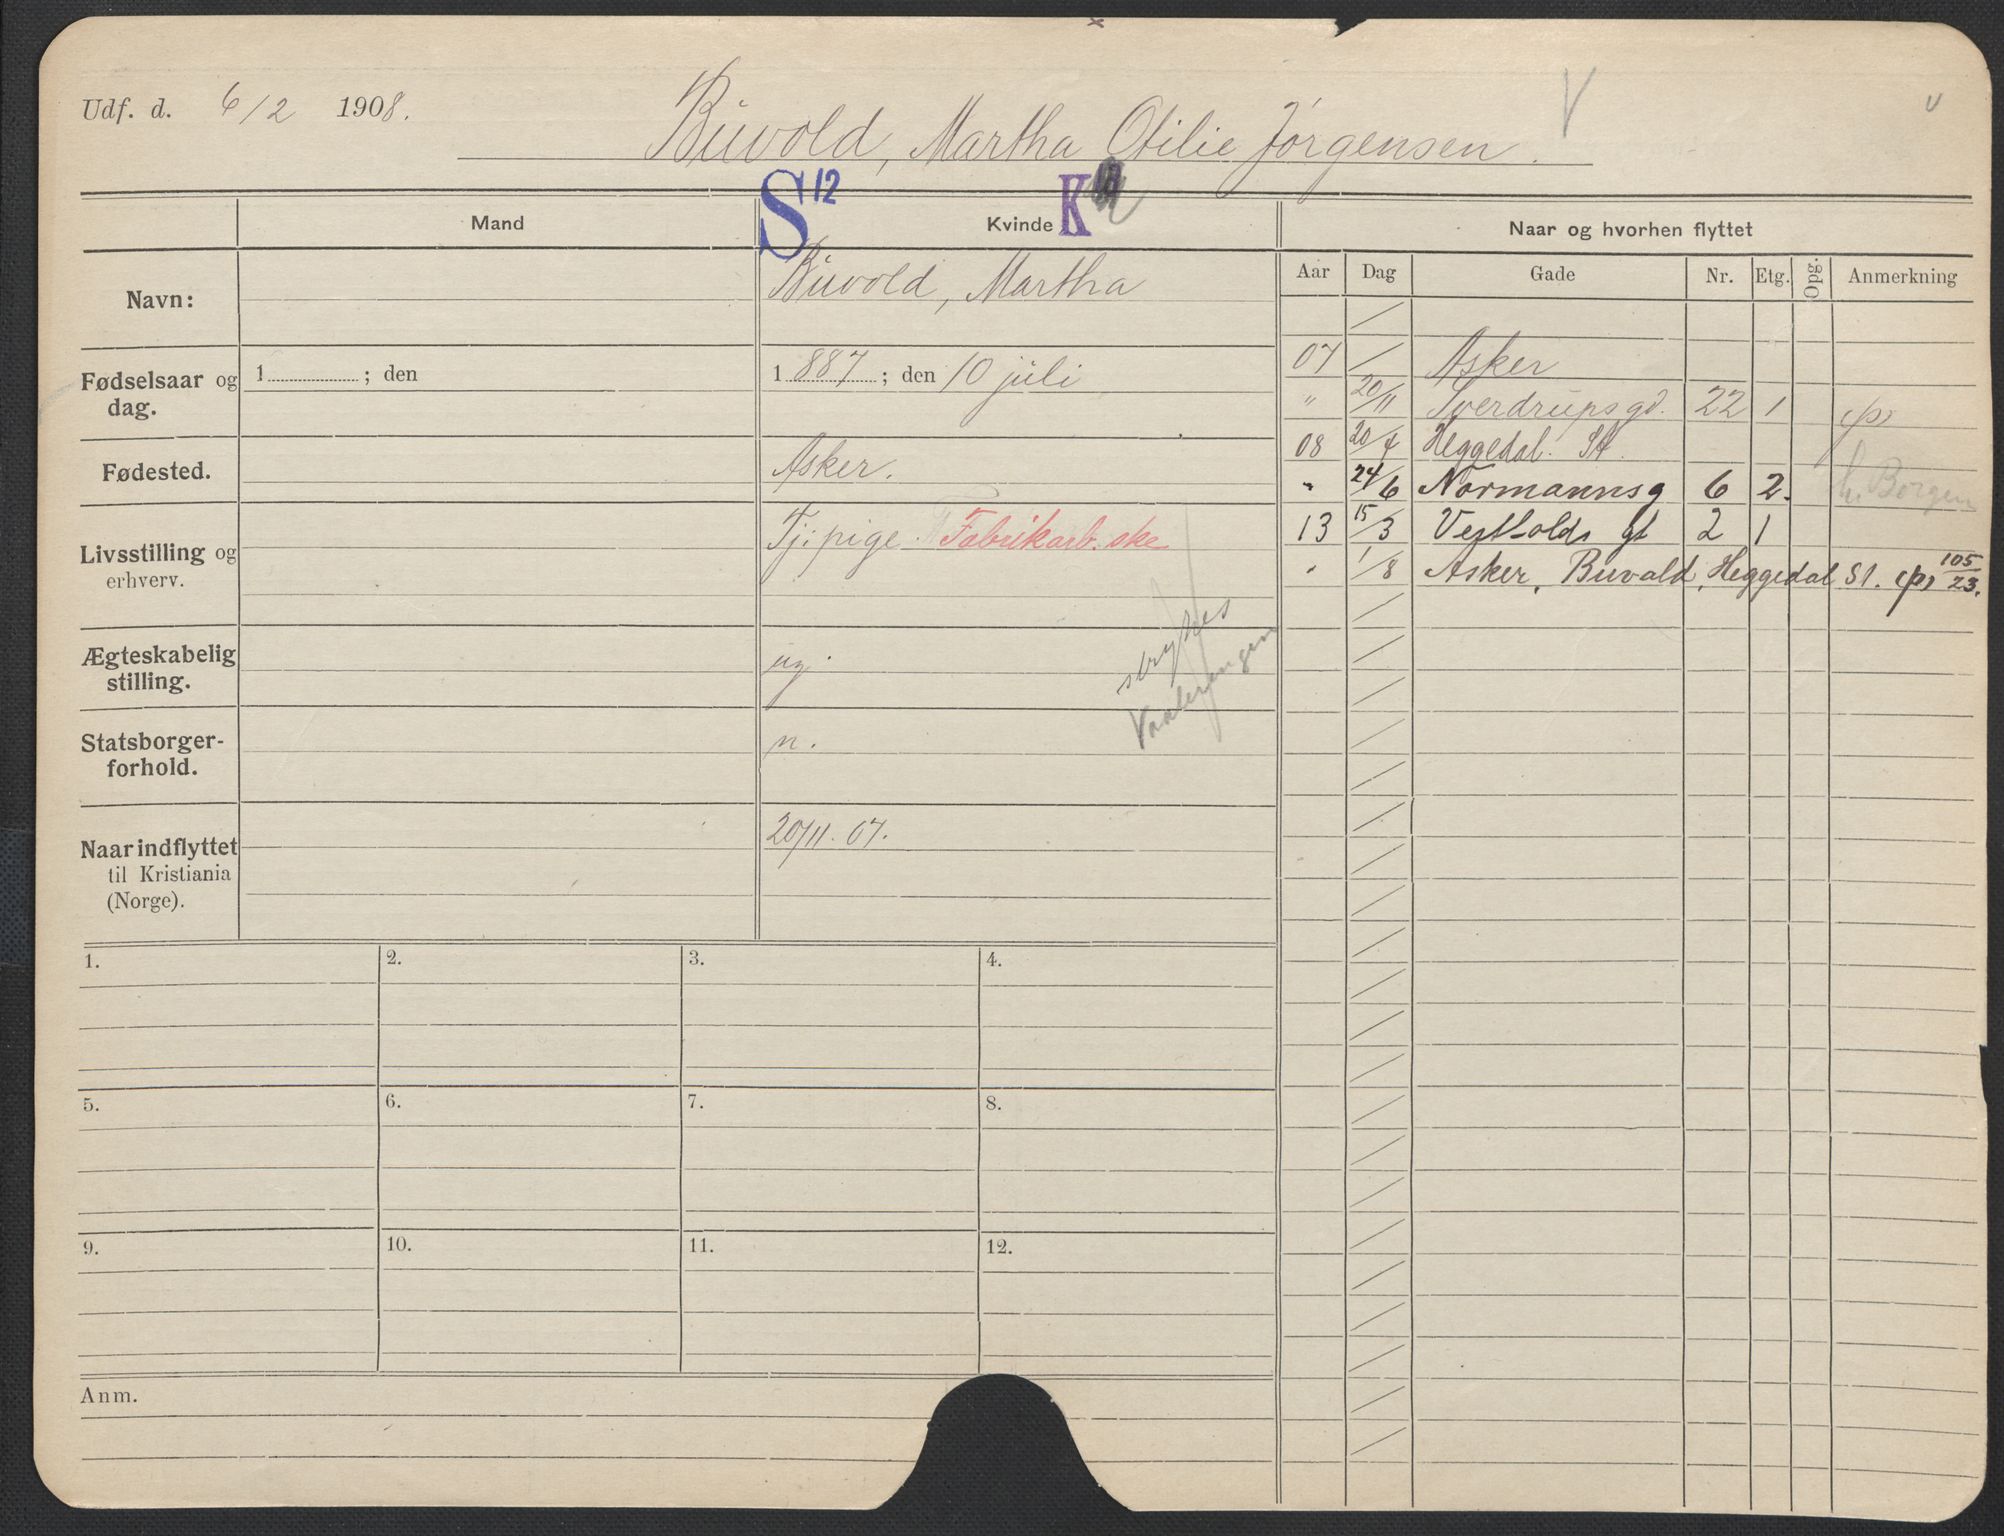 Udf. d. 6/2 1908.
Buvold, Martha Otilie Jørgensen. V
v
S 12
K
Mand
Kvinde
Naar og hvorhen flyttet
Aar Dag Gade Nr. Etg. Opg. Anmerkning
Navn:
Buvold, Martha
Fødselsaar og dag.
1 ; den
1 887 ; den 10 juli
Fødested.
Asker.
Livsstilling og erhverv.
Tj. pige. Fabrikarb.ske
Ægteskabelig stilling.
ug.
strykes
Vaalerengen
Statsborger-
forhold.
n.
Naar indflyttet
til Kristiania
(Norge).
20/11. 07.
07 / Asker
" 20/11 Sverdrupsgd. 22 1 (p)
08 20/4 Heggedal. St.
" 24/6 Normannsg 6 2. hr. Borgen
13 15/3 Vestfolds gt 2 1
" 1/8 Asker, Buvald, Heggedal St. (p) 105/23.
1.
2.
3.
4.
5.
6.
7.
8.
9.
10.
11.
12.
Anm.